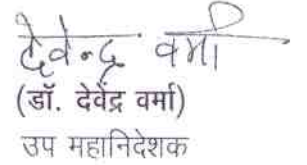 देवेन्द्र वर्मा
(डॉ. देवेंद्र वर्मा)
उप महानिदेशक